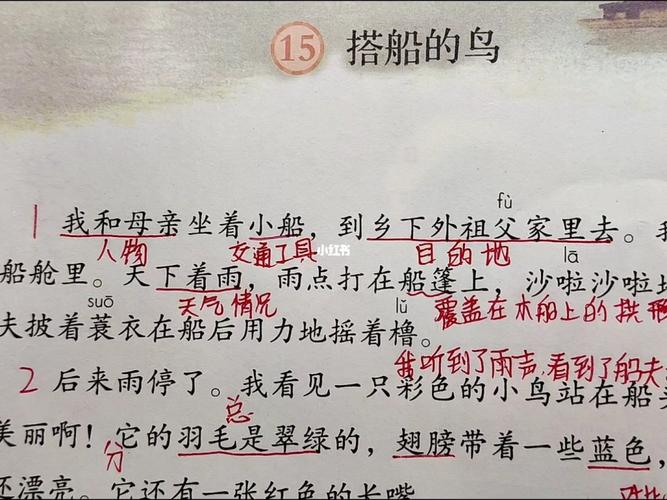 15 搭船的鸟
fù
1 我和母亲坐着小船，到乡下外祖父家里去。我
人物 交通工具 小红书 目的地 lā
船舱里。天下着雨，雨点打在船篷上，沙啦沙啦地
suō 天气情况 lǔ 覆盖在木船上的拱形
夫披着蓑衣在船后用力地摇着橹。
我听到了雨声，看到了船夫
2 后来雨停了。我看见一只彩色的小鸟站在船头
总
美丽啊！它的羽毛是翠绿的，翅膀带着一些蓝色，
分
还漂亮。它还有一张红色的长嘴